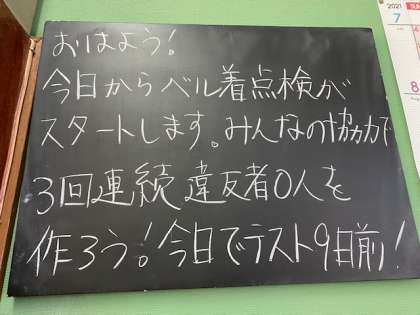 おはよう!
今日からベル着点検が
スタートします。みんなの協力で
3回連続違反者0人を
作ろう!今日でテスト9日前!
2021
7
8